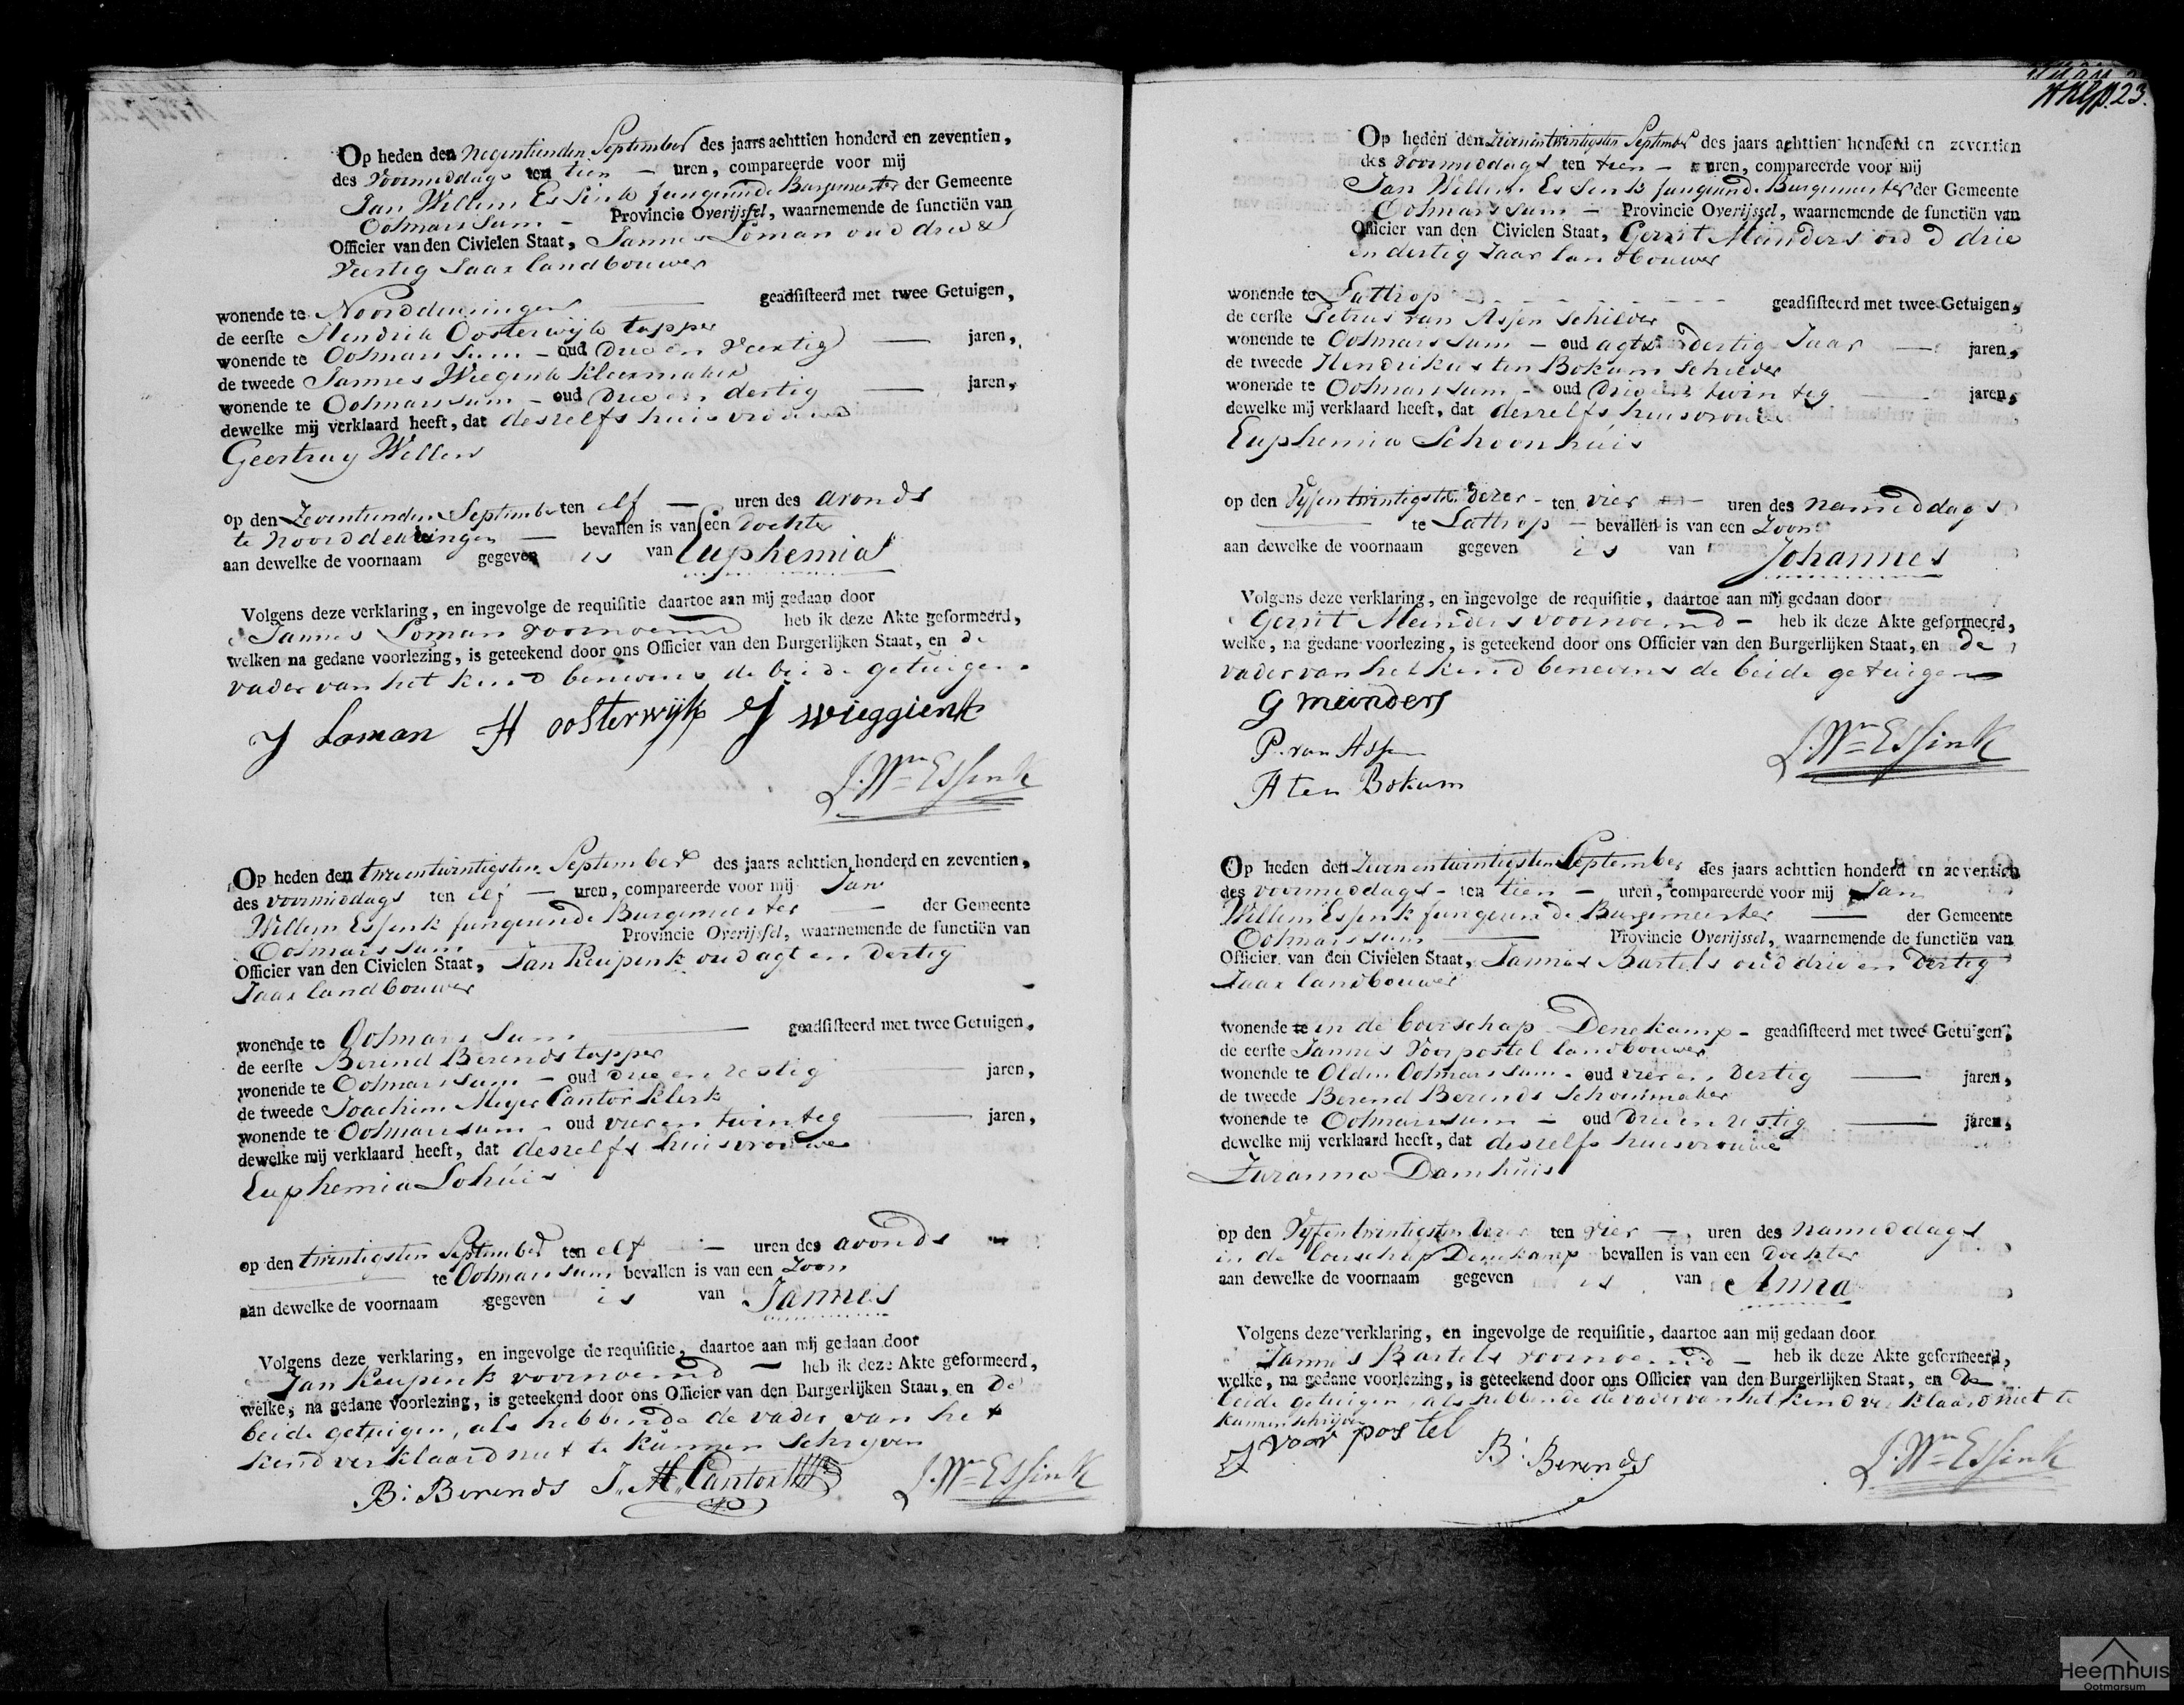 Op heden den Negentienden September des jaars achttien honderd en zeventien,
des Voormiddags ten tien — uren, compareerde voor mij
Jan Willem Essink fungeerende Burgemeester der Gemeente
Ootmarssum — Provincie Overijssel, waarnemende de functiën van
Officier van den Civielen Staat, Jannes Loman oud drie &
Veertig Jaar landbouwer
wonende te Noorddeuringen — geadsisteerd met twee Getuigen,
de eerste Hendrik Oosterwijk tapper
wonende te Ootmarssum — oud Drie en Veertig — jaren,
de tweede Jannes Wiegink kleermaker
wonende te Ootmarssum — oud Drie en dertig — jaren,
dewelke mij verklaard heeft, dat deszelfs huisvrouwe
Geertruy Wellen
op den Zeventienden September ten elf — uren des avonds
te Noorddeuringen — bevallen is van een dochter
aan dewelke de voornaam gegeven is van Euphemia
Volgens deze verklaring, en ingevolge de requisitie daartoe aan mij gedaan door
Jannes Loman voornoemd heb ik deze Akte geformeerd,
welken na gedane voorlezing, is geteekend door ons Officier van den Burgerlijken Staat, en de
vader van het kind benevens de beide getuigen
J Loman H oosterwijk J wieggienk
J. Wm Essink
Op heden den tweentwintigsten September des jaars achttien honderd en zeventien,
des voormiddags ten elf — uren, compareerde voor mij Jan
Willem Essink fungeerende Burgemeester — der Gemeente
Ootmarssum — Provincie Overijssel, waarnemende de functiën van
Officier van den Civielen Staat, Jan Keupink oud agt en Dertig
Jaar landbouwer
wonende te Ootmarssum — geadsisteerd met twee Getuigen,
de eerste Berend Berends tapper
wonende te Ootmarssum — oud Drie en zestig — jaren,
de tweede Joachim Meyer Cantor klerk
wonende te Ootmarssum — oud vier en twinteg — jaren,
dewelke mij verklaard heeft, dat deszelfs huisvrouwe
Euphemia Lohuis
op den twintigsten September ten elf — uren des avonds
te Ootmarssum bevallen is van een Zoon
aan dewelke de voornaam gegeven is van Jannes
Volgens deze verklaring, en ingevolge de requisitie, daartoe aan mij gedaan door
Jan Keupink voornoemd — heb ik deze Akte geformeerd,
welke, na gedane voorlezing, is geteekend door ons Officier van den Burgerlijken Staat, en De
beide getuigen, als hebbende de vader van het
kind verklaard niet te kunnen schryven
B: Berends J. M. Cantor J. Wm Essink
23.
Op heden den Zevenentwintigsten September des jaars achttien honderd en zeventien
des voormiddags ten tien — uren, compareerde voor mij
Jan Willem Essink fungeerende Burgemeester der Gemeente
Ootmarssum — Provincie Overijssel, waarnemende de functiën van
Officier van den Civielen Staat, Gerrit Meinders oud drie
en dertig Jaar landbouwer
wonende te Lattrop — geadsisteerd met twee Getuigen,
de eerste Petrus van Assen Schilder
wonende te Ootmarssum — oud agt & dertig Jaar — jaren,
de tweede Hendrikus ten Bokum Schilder
wonende te Ootmarssum — oud Drie en twinteg — jaren,
dewelke mij verklaard heeft, dat deszelfs huisvrouwe
Euphemia Schoonhuis
op den Vyfentwintigsten dezer - ten vier — uren des Namiddags
— te Lattrop — bevallen is van een Zoon
aan dewelke de voornaam gegeven is van Johannes
Volgens deze verklaring, en ingevolge de requisitie, daartoe aan mij gedaan door
Gerrit Meinders voornoemd — heb ik deze Akte geformeerd,
welke, na gedane voorlezing, is geteekend door ons Officier van den Burgerlijken Staat, en De
vader van het kind benevens de beide getuigen
G meinders
P. van Assen J. Wm Essink
H ten Bokum
Op heden den Zevenentwintigsten September des jaars achttien honderd en zeventien
des voormiddags - ten tien — uren, compareerde voor mij Jan
Willem Essink fungeerende Burgemeester — der Gemeente
Ootmarssum — Provincie Overijssel, waarnemende de functiën van
Officier van den Civielen Staat, Jannes Bartels oud drie en Dertig
Jaar landbouwer
wonende te in de boerschap Denekamp - geadsisteerd met twee Getuigen,
de eerste Jannes Voorpostel landbouwer
wonende te Olden Ootmarssum - oud vier en Dertig — jaren,
de tweede Berend Berends Schoenmaker
wonende te Ootmarssum — oud Drie en zestig — jaren,
dewelke mij verklaard heeft, dat deszelfs huisvrouwe
Zuzanna Damhuis
op den Vyfentwintigsten dezer ten vier — uren des Namiddags
in de boerschap Denekamp bevallen is van een Dochter
aan dewelke de voornaam gegeven is van Anna
Volgens deze verklaring, en ingevolge de requisitie, daartoe aan mij gedaan door
Jannes Bartels voornoemd — heb ik deze Akte geformeerd,
welke, na gedane voorlezing, is geteekend door ons Officier van den Burgerlijken Staat, en De
beide getuigen, als hebbende de vader van het kind verklaard niet te
kunnen schrijven
J voor postel B: Berends J. Wm Essink
Heemhuis
Ootmarsum